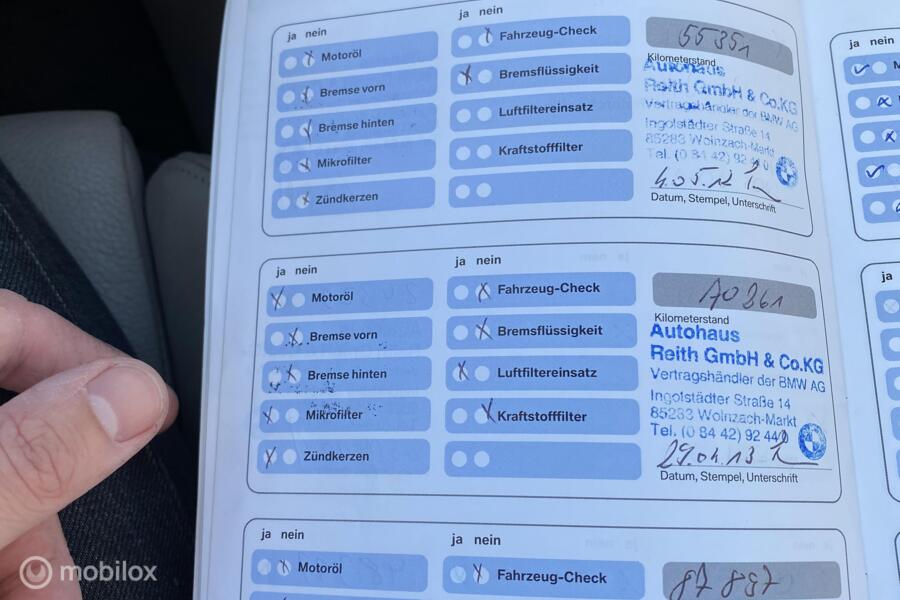 ja nein
Motoröl
Bremse vorn
Bremse hinten
Mikrofilter
Zündkerzen
ja nein
Fahrzeug-Check
Bremsflüssigkeit
Luftfiltereinsatz
Kraftstofffilter
55351
Kilometerstand
Autohaus
Reith GmbH & Co.KG
Vertragshändler der BMW AG
Ingolstädter Straße 14
85283 Wolnzach-Markt
Tel. (0 84 42) 92
4.05.12
Datum, Stempel, Unterschrift
ja nein
Motoröl
Bremse vorn
Bremse hinten
Mikrofilter
Zündkerzen
ja nein
Fahrzeug-Check
Bremsflüssigkeit
Luftfiltereinsatz
Kraftstofffilter
70861
Kilometerstand
Autohaus
Reith GmbH & Co.KG
Vertragshändler der BMW AG
Ingolstädter Straße 14
85283 Wolnzach-Markt
Tel. (0 84 42) 92 44 0
29.01.13
Datum, Stempel, Unterschrift
ja nein
Motoröl
ja nein
Fahrzeug-Check
87 897
ja nein
ja
mobilox